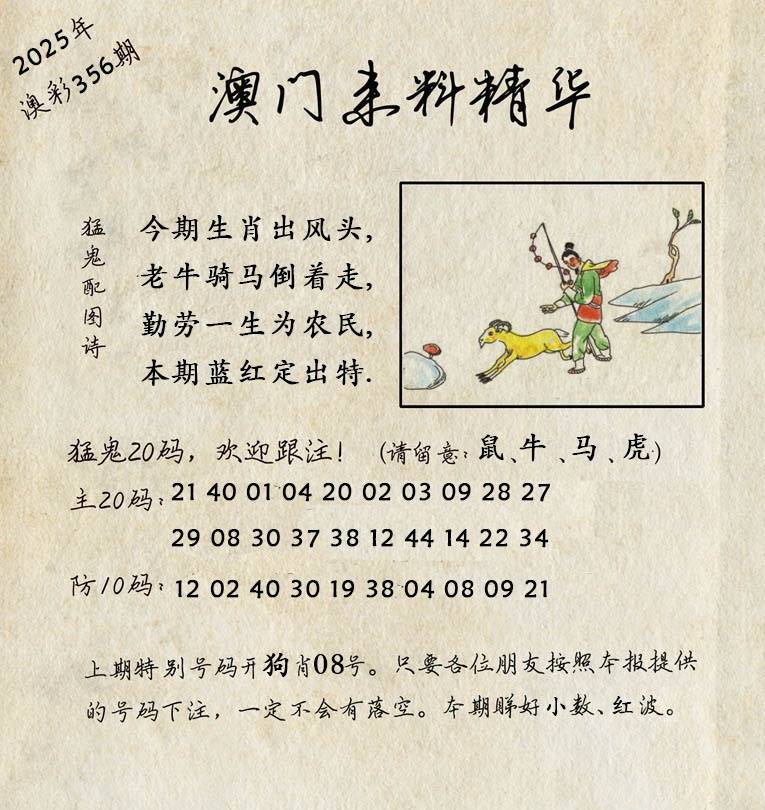 2025年
澳彩356期
澳门来料精华
猛鬼配图诗
今期生肖出风头,
老牛骑马倒着走,
勤劳一生为农民,
本期蓝红定出特.
猛鬼20码，欢迎跟注！（请留意：鼠、牛、马、虎）
主20码：21 40 01 04 20 02 03 09 28 27
29 08 30 37 38 12 44 14 22 34
防10码：12 02 40 30 19 38 04 08 09 21
上期特别号码开狗肖08号。只要各位朋友按照本报提供
的号码下注，一定不会有落空。本期睇好小数、红波。